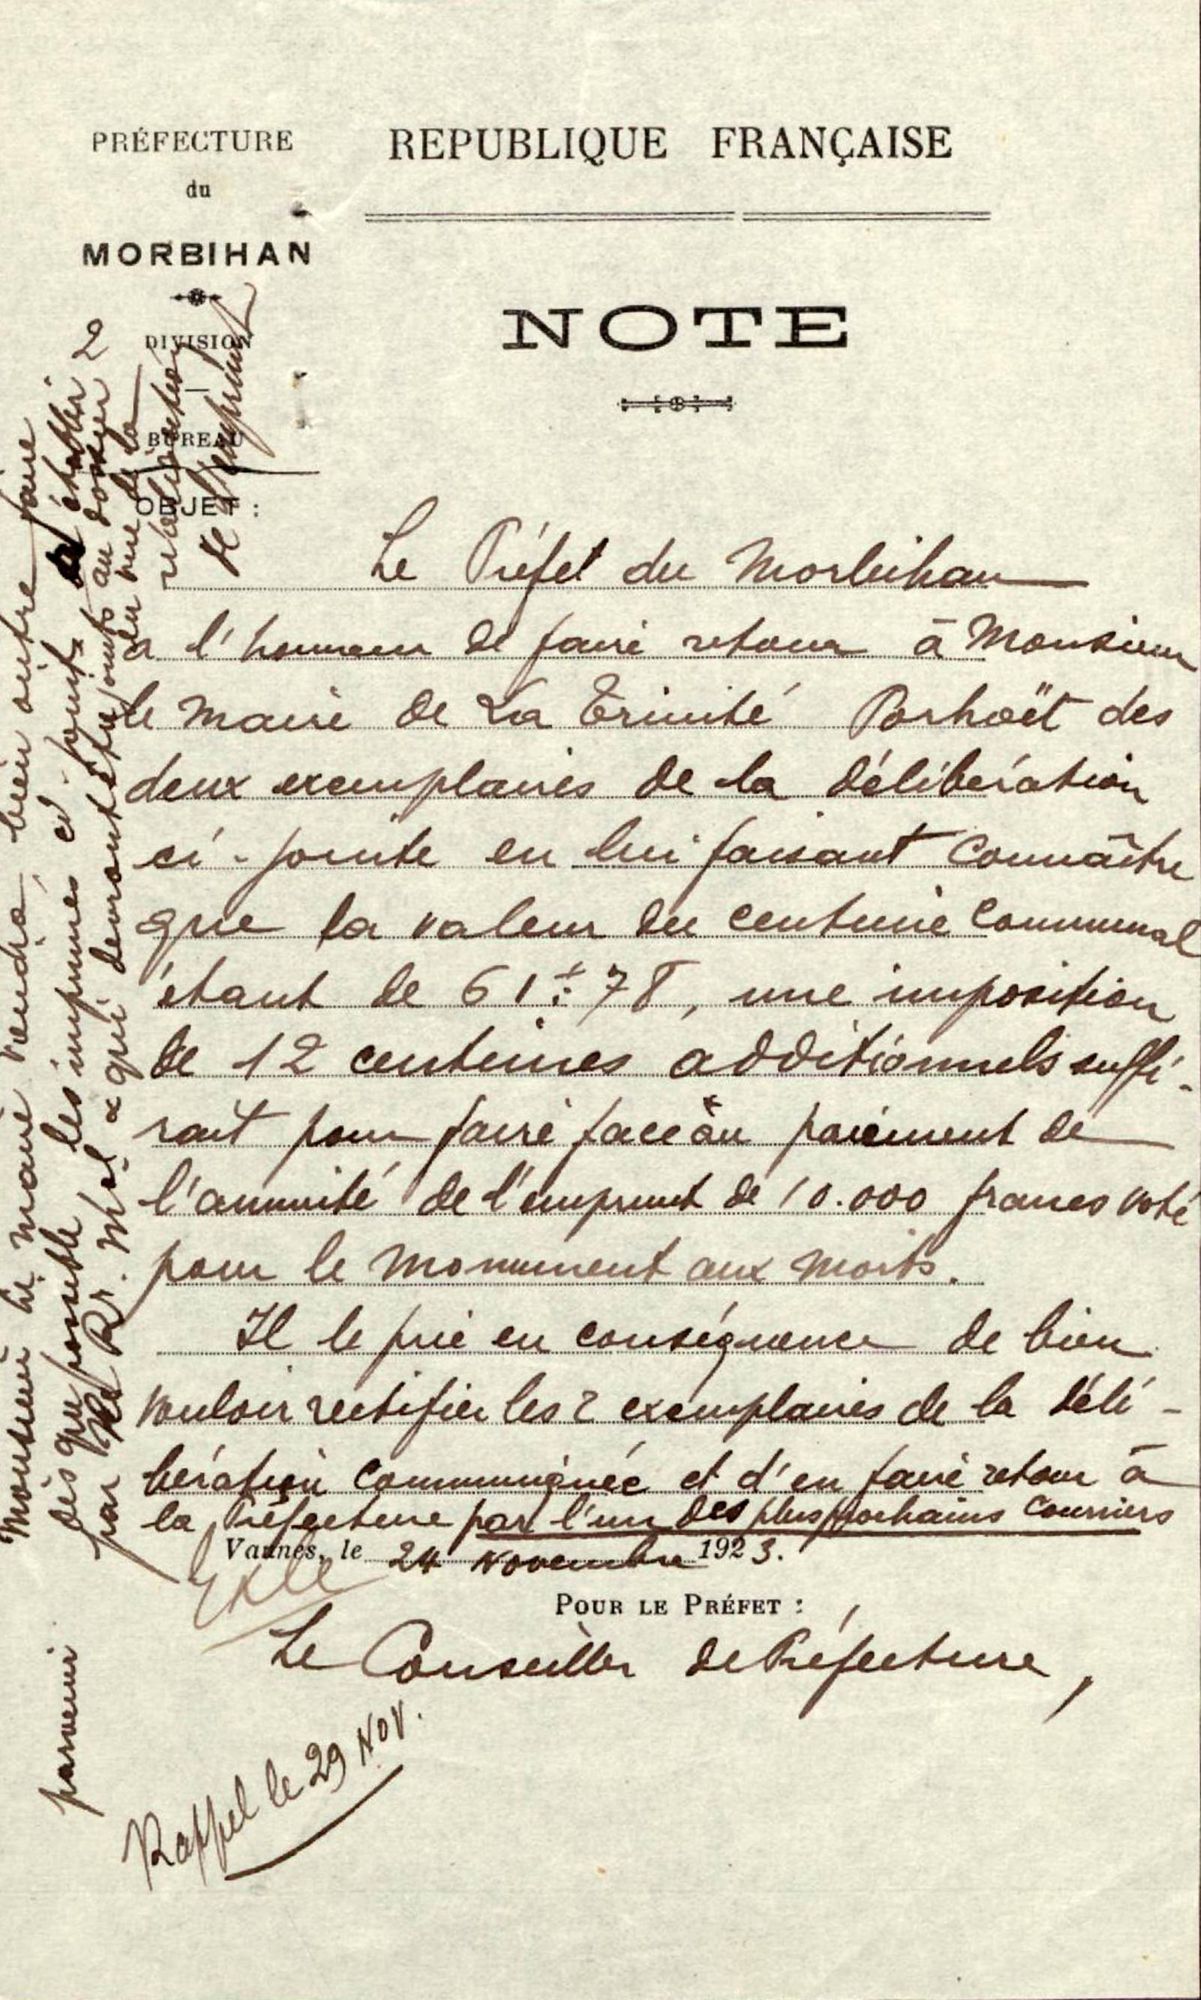 PRÉFECTURE
du
MORBIHAN
DIVISION
BUREAU
OBJET :
REPUBLIQUE FRANÇAISE
NOTE
Le Préfet du Morbihan
a l'honneur de faire retour à Monsieur
le Maire de La Trinité Porhoët des
deux exemplaires de la délibération
ci-jointe en lui faisant connaître
que la valeur du centime communal
étant de 61 f 78, une imposition
de 12 centimes additionnels suffi-
rait pour faire face au paiement de
l'annuité de l'emprunt de 10.000 francs voté
pour le Monument aux Morts.
Il le prie en conséquence de bien
vouloir rectifier les 2 exemplaires de la déli-
bération communiquée et d'en faire retour à
la Préfecture par l'un des plus prochains courriers
Vannes, le 24 Novembre 1923.
POUR LE PRÉFET :
Le Conseiller de Préfecture,
Rappel le 29 Nov.
Monsieur le Maire vendra bien outre faire
parvenir dès que possible les imprimés ci-joints établir 2
par Mal & qui devront être joints au dossier
en vue de la
réalisation
de l'emprunt